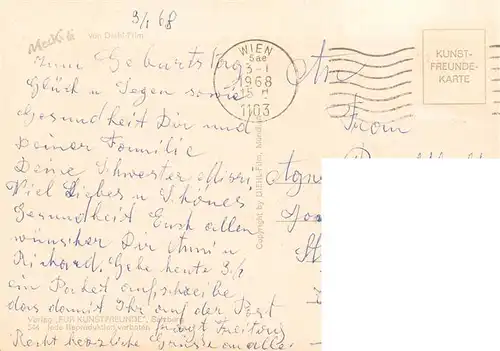 3/1 68
Mecki von Diehl-Film
Zum Geburtstag
Glück u Segen sowie
Gesundheit Dir und
Deiner Familie
Deine Schwester Missi.
Viel Liebes u Schönes
Gesundheit Euch allen
wünschen Dir Anni u
Richard. Gebe heute 3/1
ein Paket auf, schreibe
das damit Ihr auf der Post
fragt
Recht herzliche Grüsse an alle.
Verlag "FÜR KUNSTFREUNDE", Salzburg
Jede Reproduktion verboten
WIEN
3-1
1968
15
1103
KUNST-
FREUNDE-
KARTE
An
Copyright by DIEHL-Film,